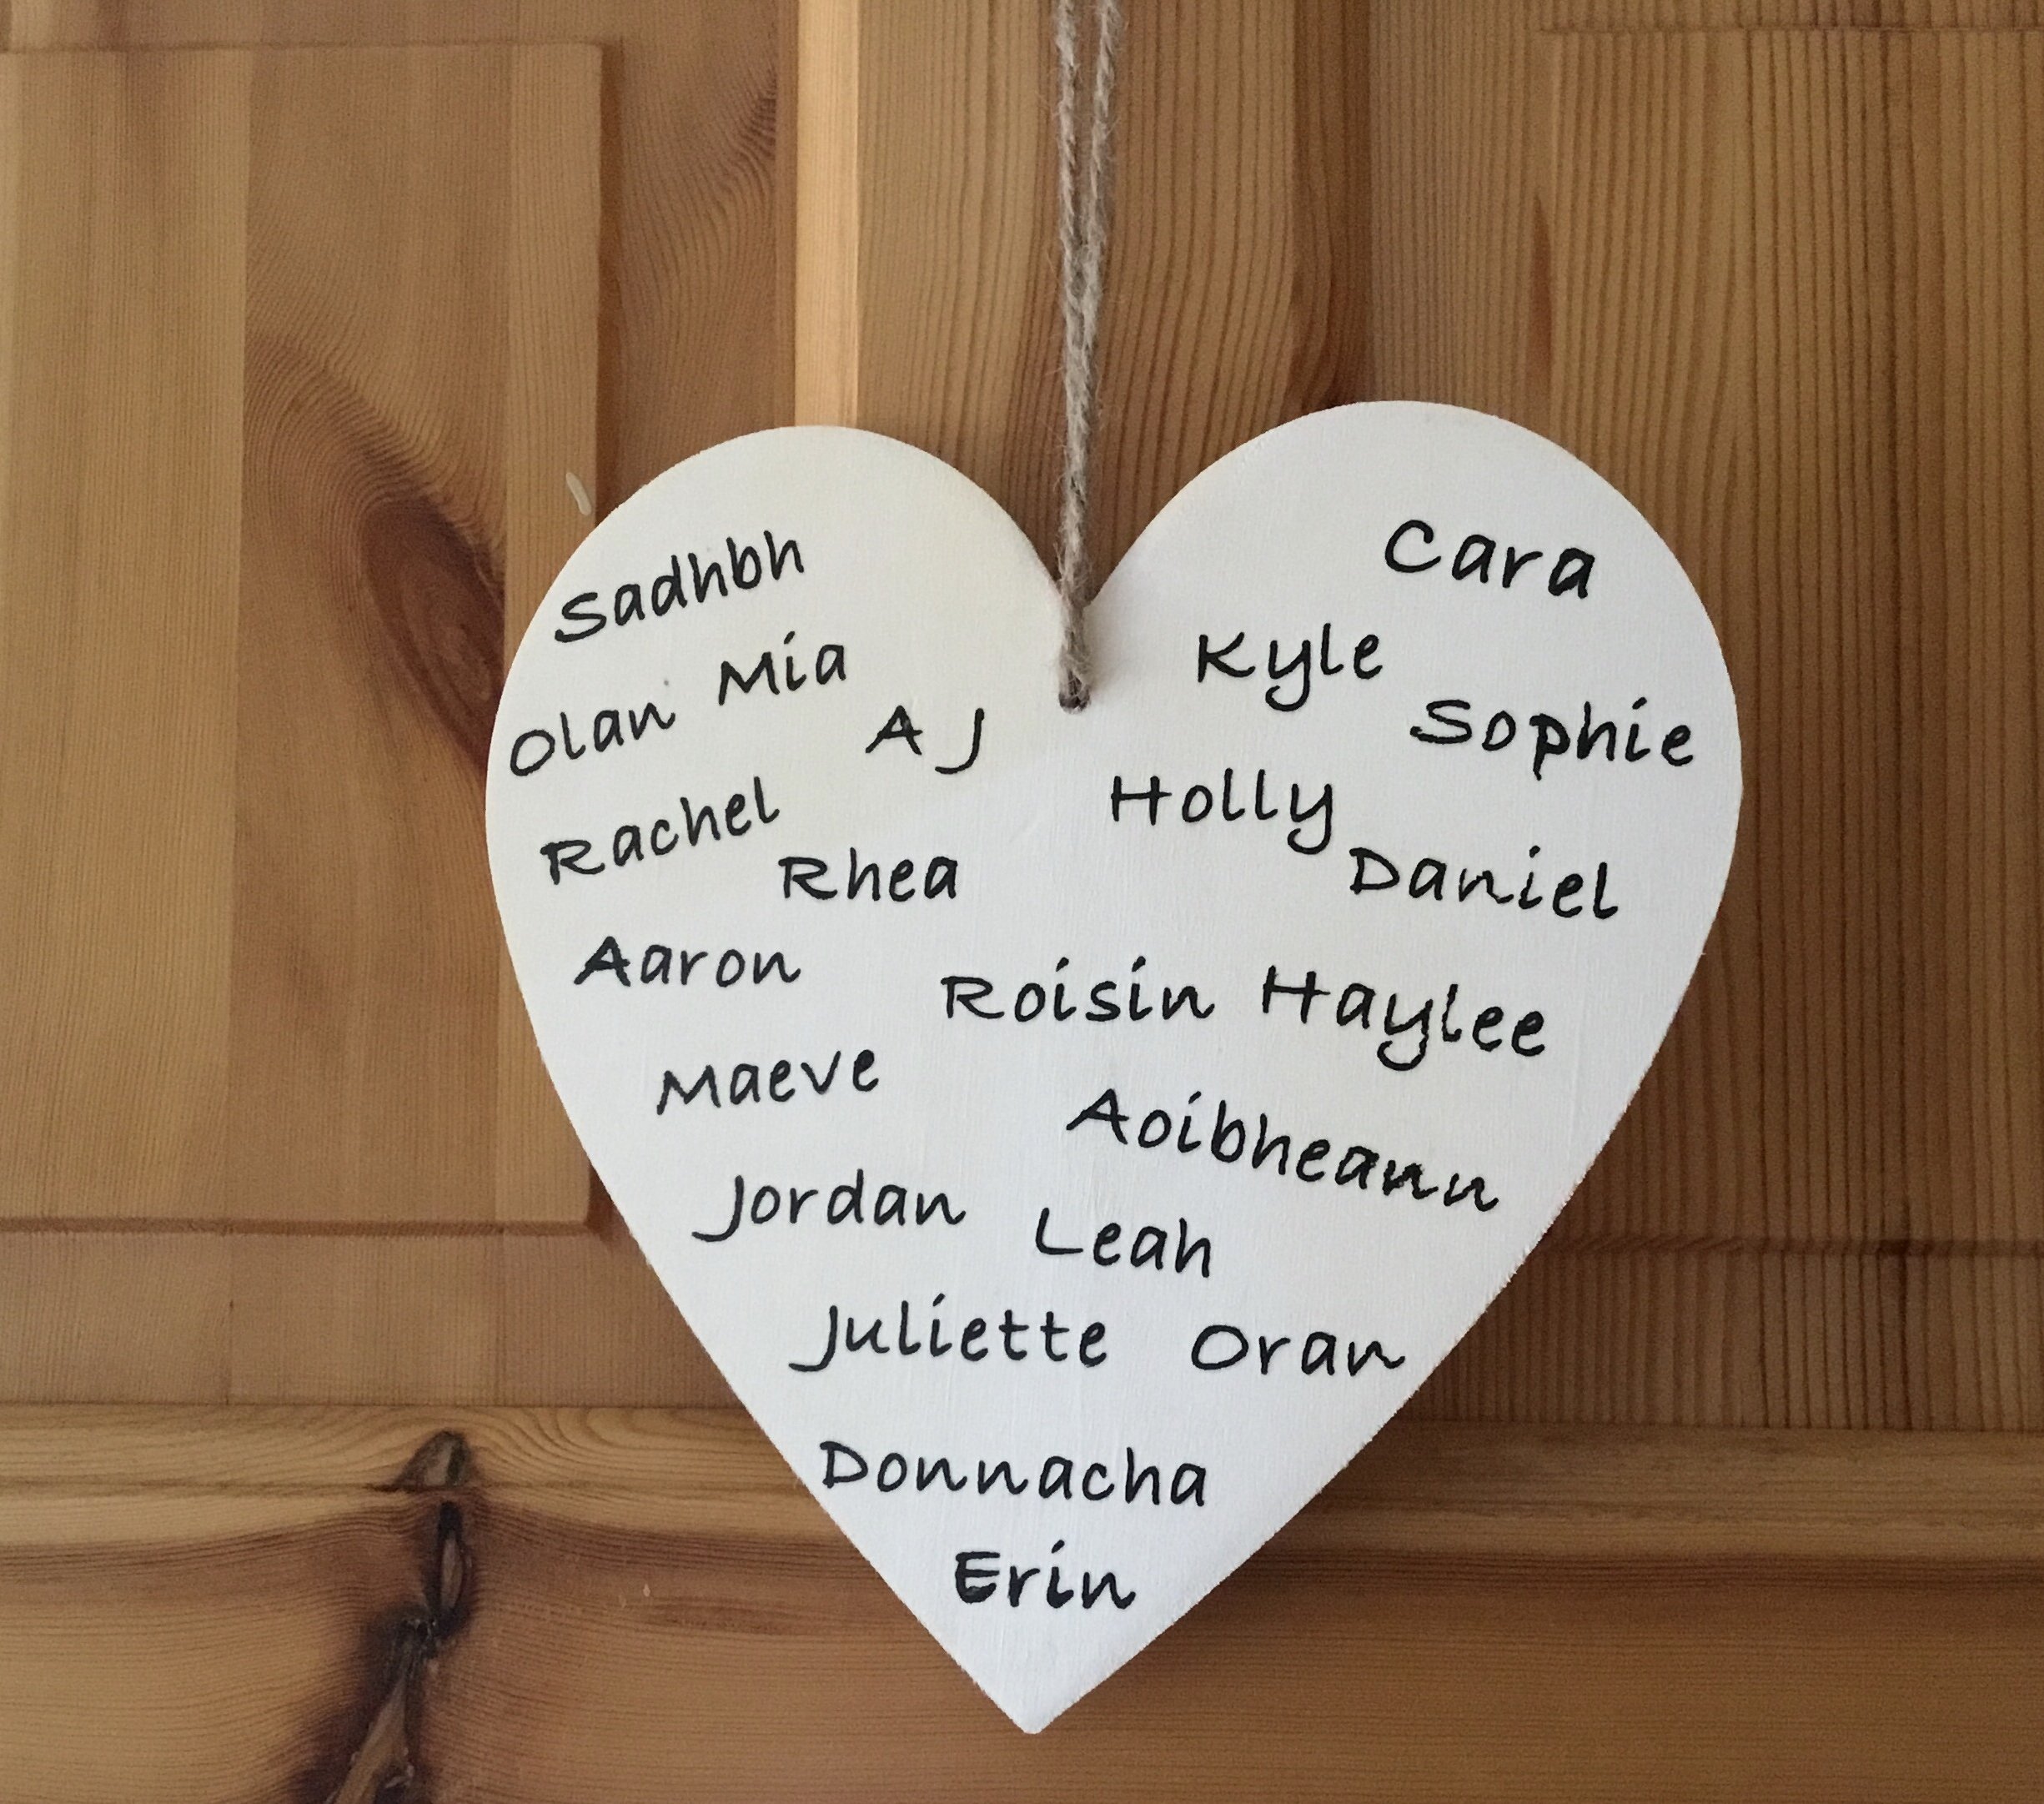 Sadhbh
Cara
Mia
Kyle
Olan
A J
Sophie
Rachel
Holly
Rhea
Daniel
Aaron
Roisin Haylee
Maeve
Aoibheann
Jordan
Leah
Juliette Oran
Donnacha
Erin